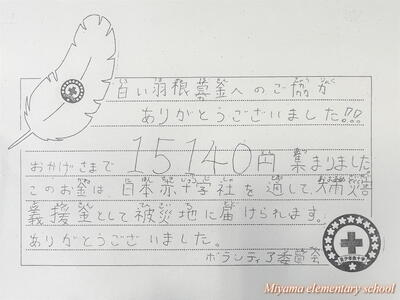 白い羽根募金へのご協力
ありがとうございました!!
おかげさまで 15140円 集まりました
このお金は、日本赤十字社を通して、大雨災害
義援金として被災地に届けられます。
ありがとうございました。
ボランティア委員会
Miyama elementary school